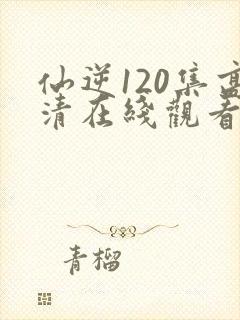 仙逆120集高
清在綫觀看
青榴